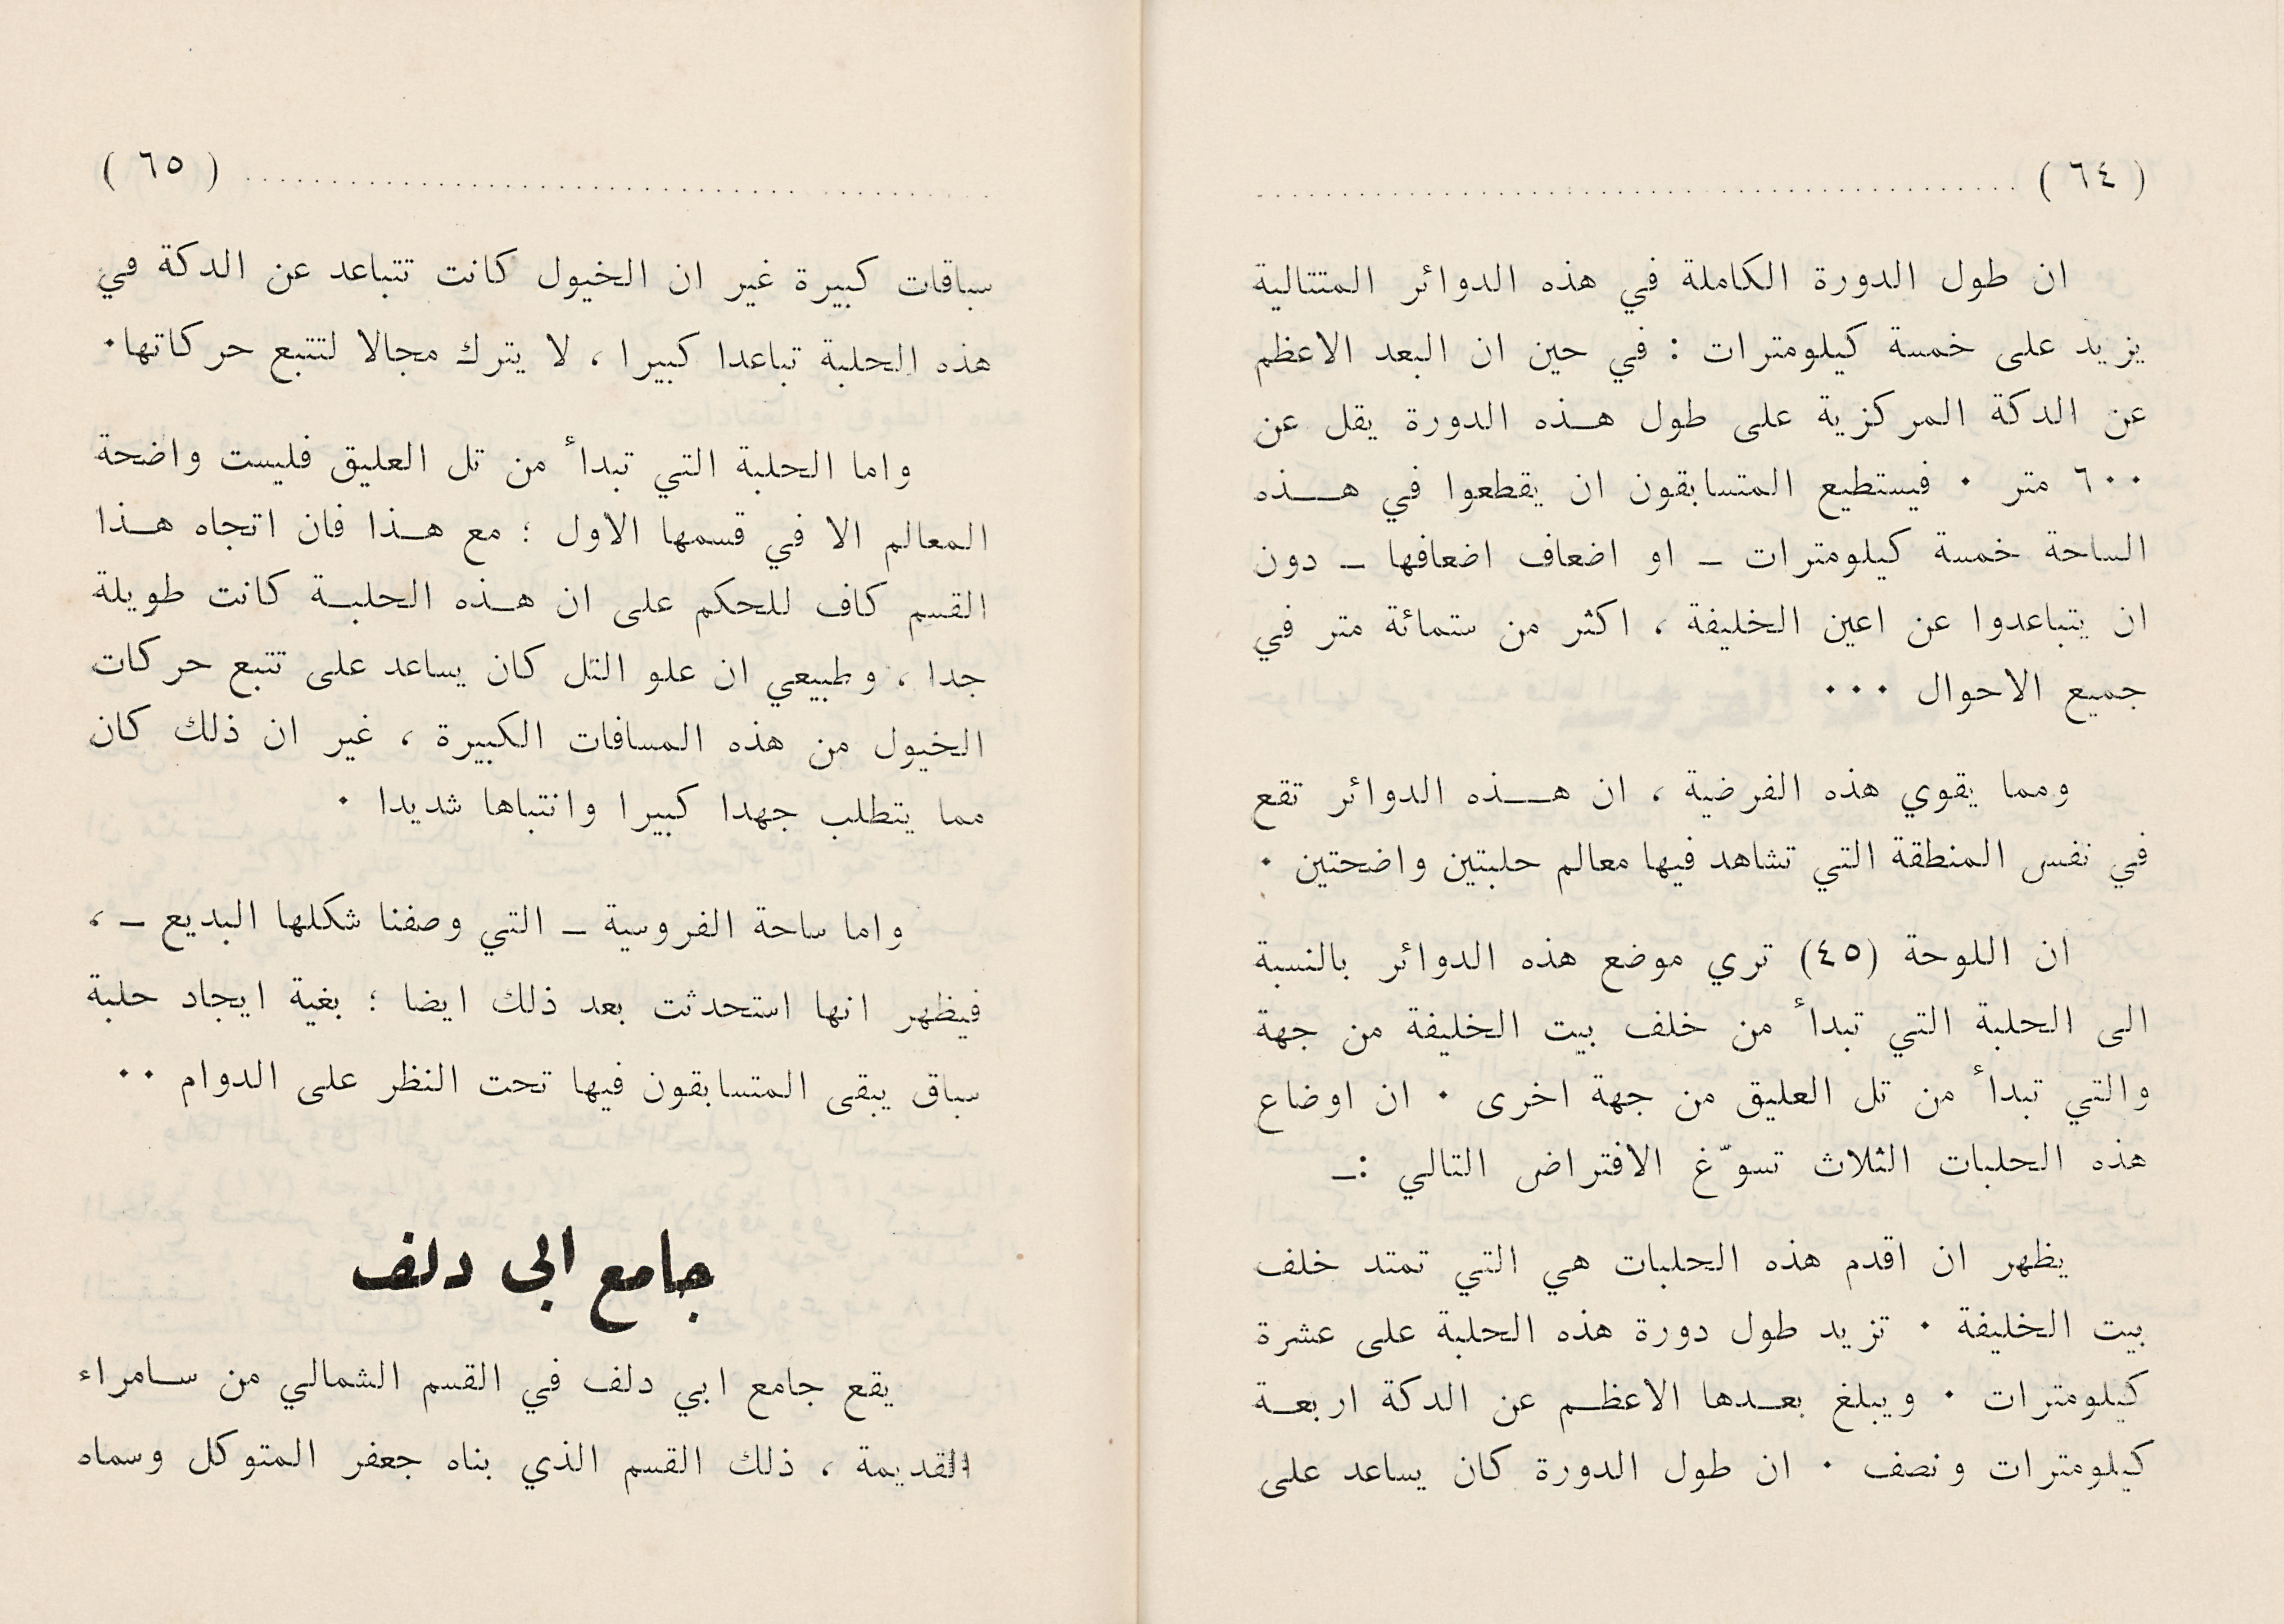 ( ٦٤ ) ..................................................
ان طول الدورة الكاملة في هذه الدوائر المتتالية
يزيد على خمسة كيلومترات : في حين ان البعد الاعظم
عن الدكة المركزية على طول هـذه الدورة يقل عن
٦٠٠ متر ٠ فيستطيع المتسابقون ان يقطعوا في هـــذه
الساحة خمسة كيلومترات ـ او اضعاف اضعافها ـ دون
ان يتباعدوا عن اعين الخليفة ، اكثر من ستمائة متر في
جميع الاحوال ٠٠٠
ومما يقوي هذه الفرضية ، ان هـــذه الدوائر تقع
في نفس المنطقة التي تشاهد فيها معالم حلبتين واضحتين ٠
ان اللوحة (٤٥) تري موضع هذه الدوائر بالنسبة
الى الحلبة التي تبدأ من خلف بيت الخليفة من جهة
والتي تبدأ من تل العليق من جهة اخرى ٠ ان اوضاع
هذه الحلبات الثلاث تسوّغ الافتراض التالي :ـ
يظهر ان اقدم هذه الحلبات هي التي تمتد خلف
بيت الخليفة ٠ تزيد طول دورة هذه الحلبة على عشرة
كيلومترات ٠ ويبلغ بعـدها الاعظـم عن الدكة اربعـة
كيلومترات ونصف ٠ ان طول الدورة كان يساعد على
( ٦٥ ) ..................................................
سباقات كبيرة غير ان الخيول كانت تتباعد عن الدكة في
هذه الحلبة تباعدا كبيرا ، لا يترك مجالا لتتبع حركاتها٠
واما الحلبة التي تبدأ من تل العليق فليست واضحة
المعالم الا في قسمها الاول ؛ مع هـذا فان اتجاه هـذا
القسم كاف للحكم على ان هـذه الحلبـة كانت طويلة
جدا ، وطبيعي ان علو التل كان يساعد على تتبع حركات
الخيول من هذه المسافات الكبيرة ، غير ان ذلك كان
مما يتطلب جهدا كبيرا وانتباها شديدا ٠
واما ساحة الفروسية ـ التي وصفنا شكلها البديع ـ ،
فيظهر انها استحدثت بعد ذلك ايضا ؛ بغية ايجاد حلبة
سباق يبقى المتسابقون فيها تحت النظر على الدوام ٠٠
جامع ابي دلف
يقع جامع ابي دلف في القسم الشمالي من سـامراء
القديمة ، ذلك القسم الذي بناه جعفر المتوكل وسماه